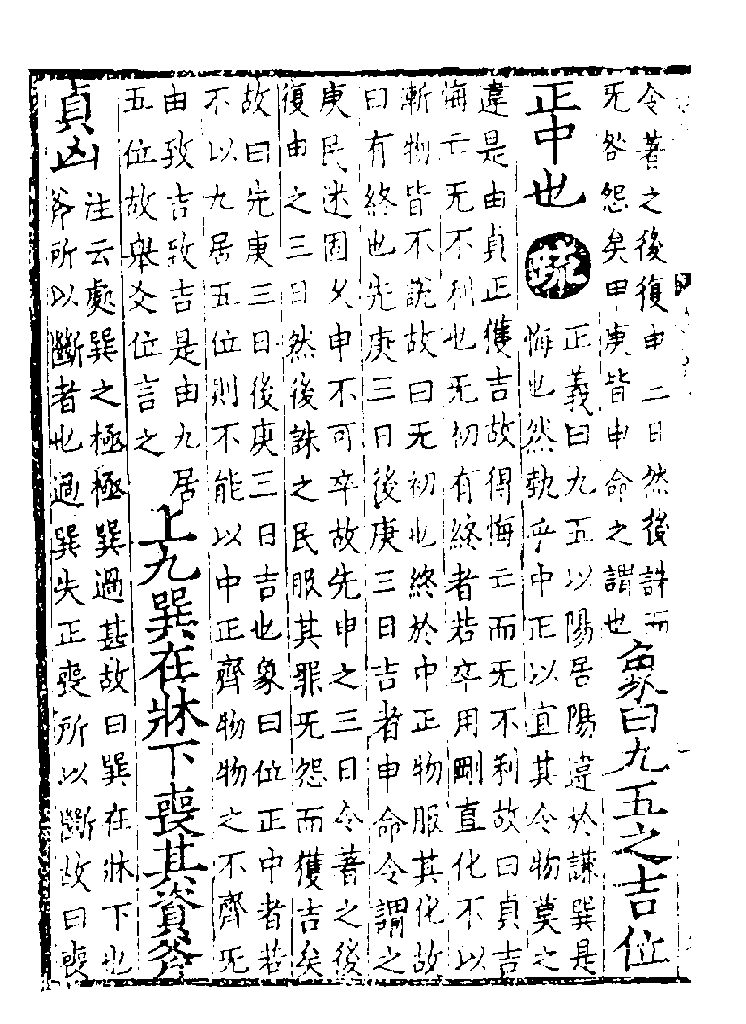 令著之後復申三日然後誅而
无咎怨矣甲庚皆申命之謂也
象曰九五之吉位
正中也
疏
正義曰九五以陽居陽違於謙巽是
悔也然執乎中正以宣其令物莫之
違是由貞正獲吉故得悔亡而无不利故曰貞吉
悔亡无不利也无初有終者若卒用剛直化不以
漸物皆不說故曰无初也終於中正物服其化故
曰有終也先庚三日後庚三日吉者申命令謂之
庚民迷固久申不可卒故先申之三日令著之後
復申之三日然後誅之民服其罪无怨而獲吉矣
故曰先庚三日後庚三日吉也象曰位正中者若
不以九居五位則不能以中正齊物物之不齊无
由致吉致吉是由九居
五位故舉爻位言之
上九巽在牀下喪其資斧
貞凶
注云處巽之極極巽過甚故曰巽在牀下也
斧所以斷者也過巽失正喪所以斷故曰喪